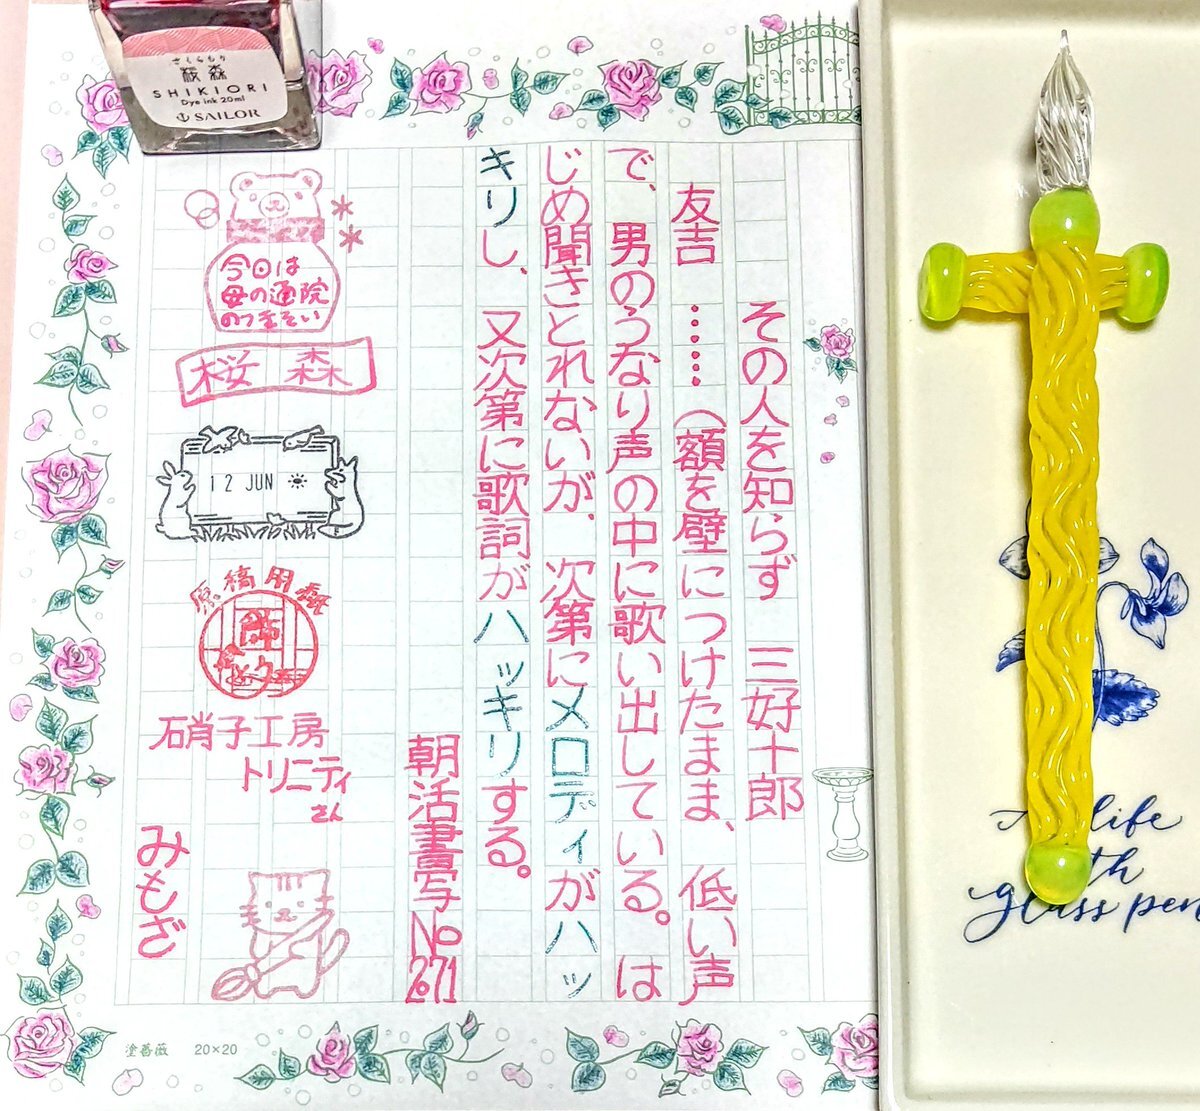 さくらもり
桜森
SHIKIORI
Dye ink 20ml
SAILOR
その人を知らず 三好十郎
友吉 ……(額を壁につけたまま、低い声
で、男のうなり声の中に歌い出している。は
じめ聞きとれないが、次第にメロディがハッ
キリし、又次第に歌詞がハッキリする。
朝活書写No271
今日は
母の通院
のつきそい
桜森
12 JUN
原稿用紙
硝子工房
トリニティ
さん
みもざ
塗薔薇 20×20
life
glass pen